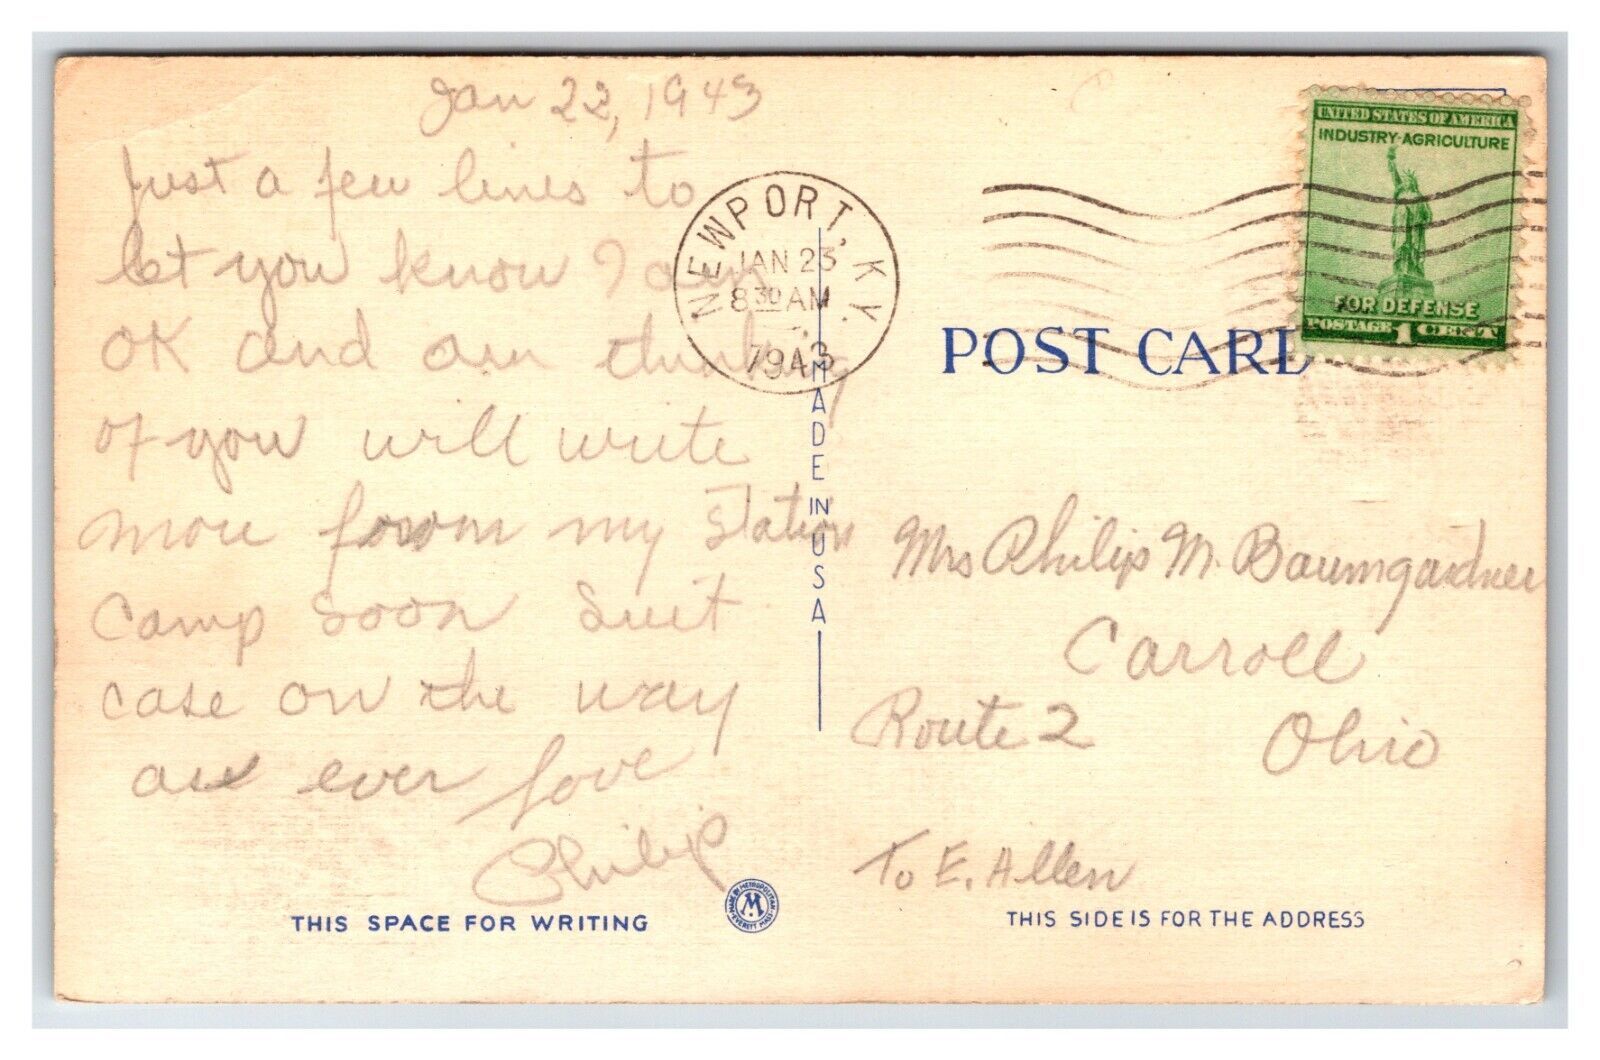 Jan 22, 1943
Just a few lines to
let you know I am
OK and am thinking
of you will write
more from my Station
Camp soon Suit
case on the way
as ever love
Philip
THIS SPACE FOR WRITING
NEWPORT, KY.
JAN 23
8 30 AM
1943
MADE IN USA
MADE BY METROPOLITAN
M
EVERETT MASS.
UNITED STATES OF AMERICA
INDUSTRY-AGRICULTURE
FOR DEFENSE
POSTAGE 1 CENT
POST CARD
Mrs Philip M. Baumgardner
Carroll
Route 2 Ohio
To E. Allen
THIS SIDE IS FOR THE ADDRESS